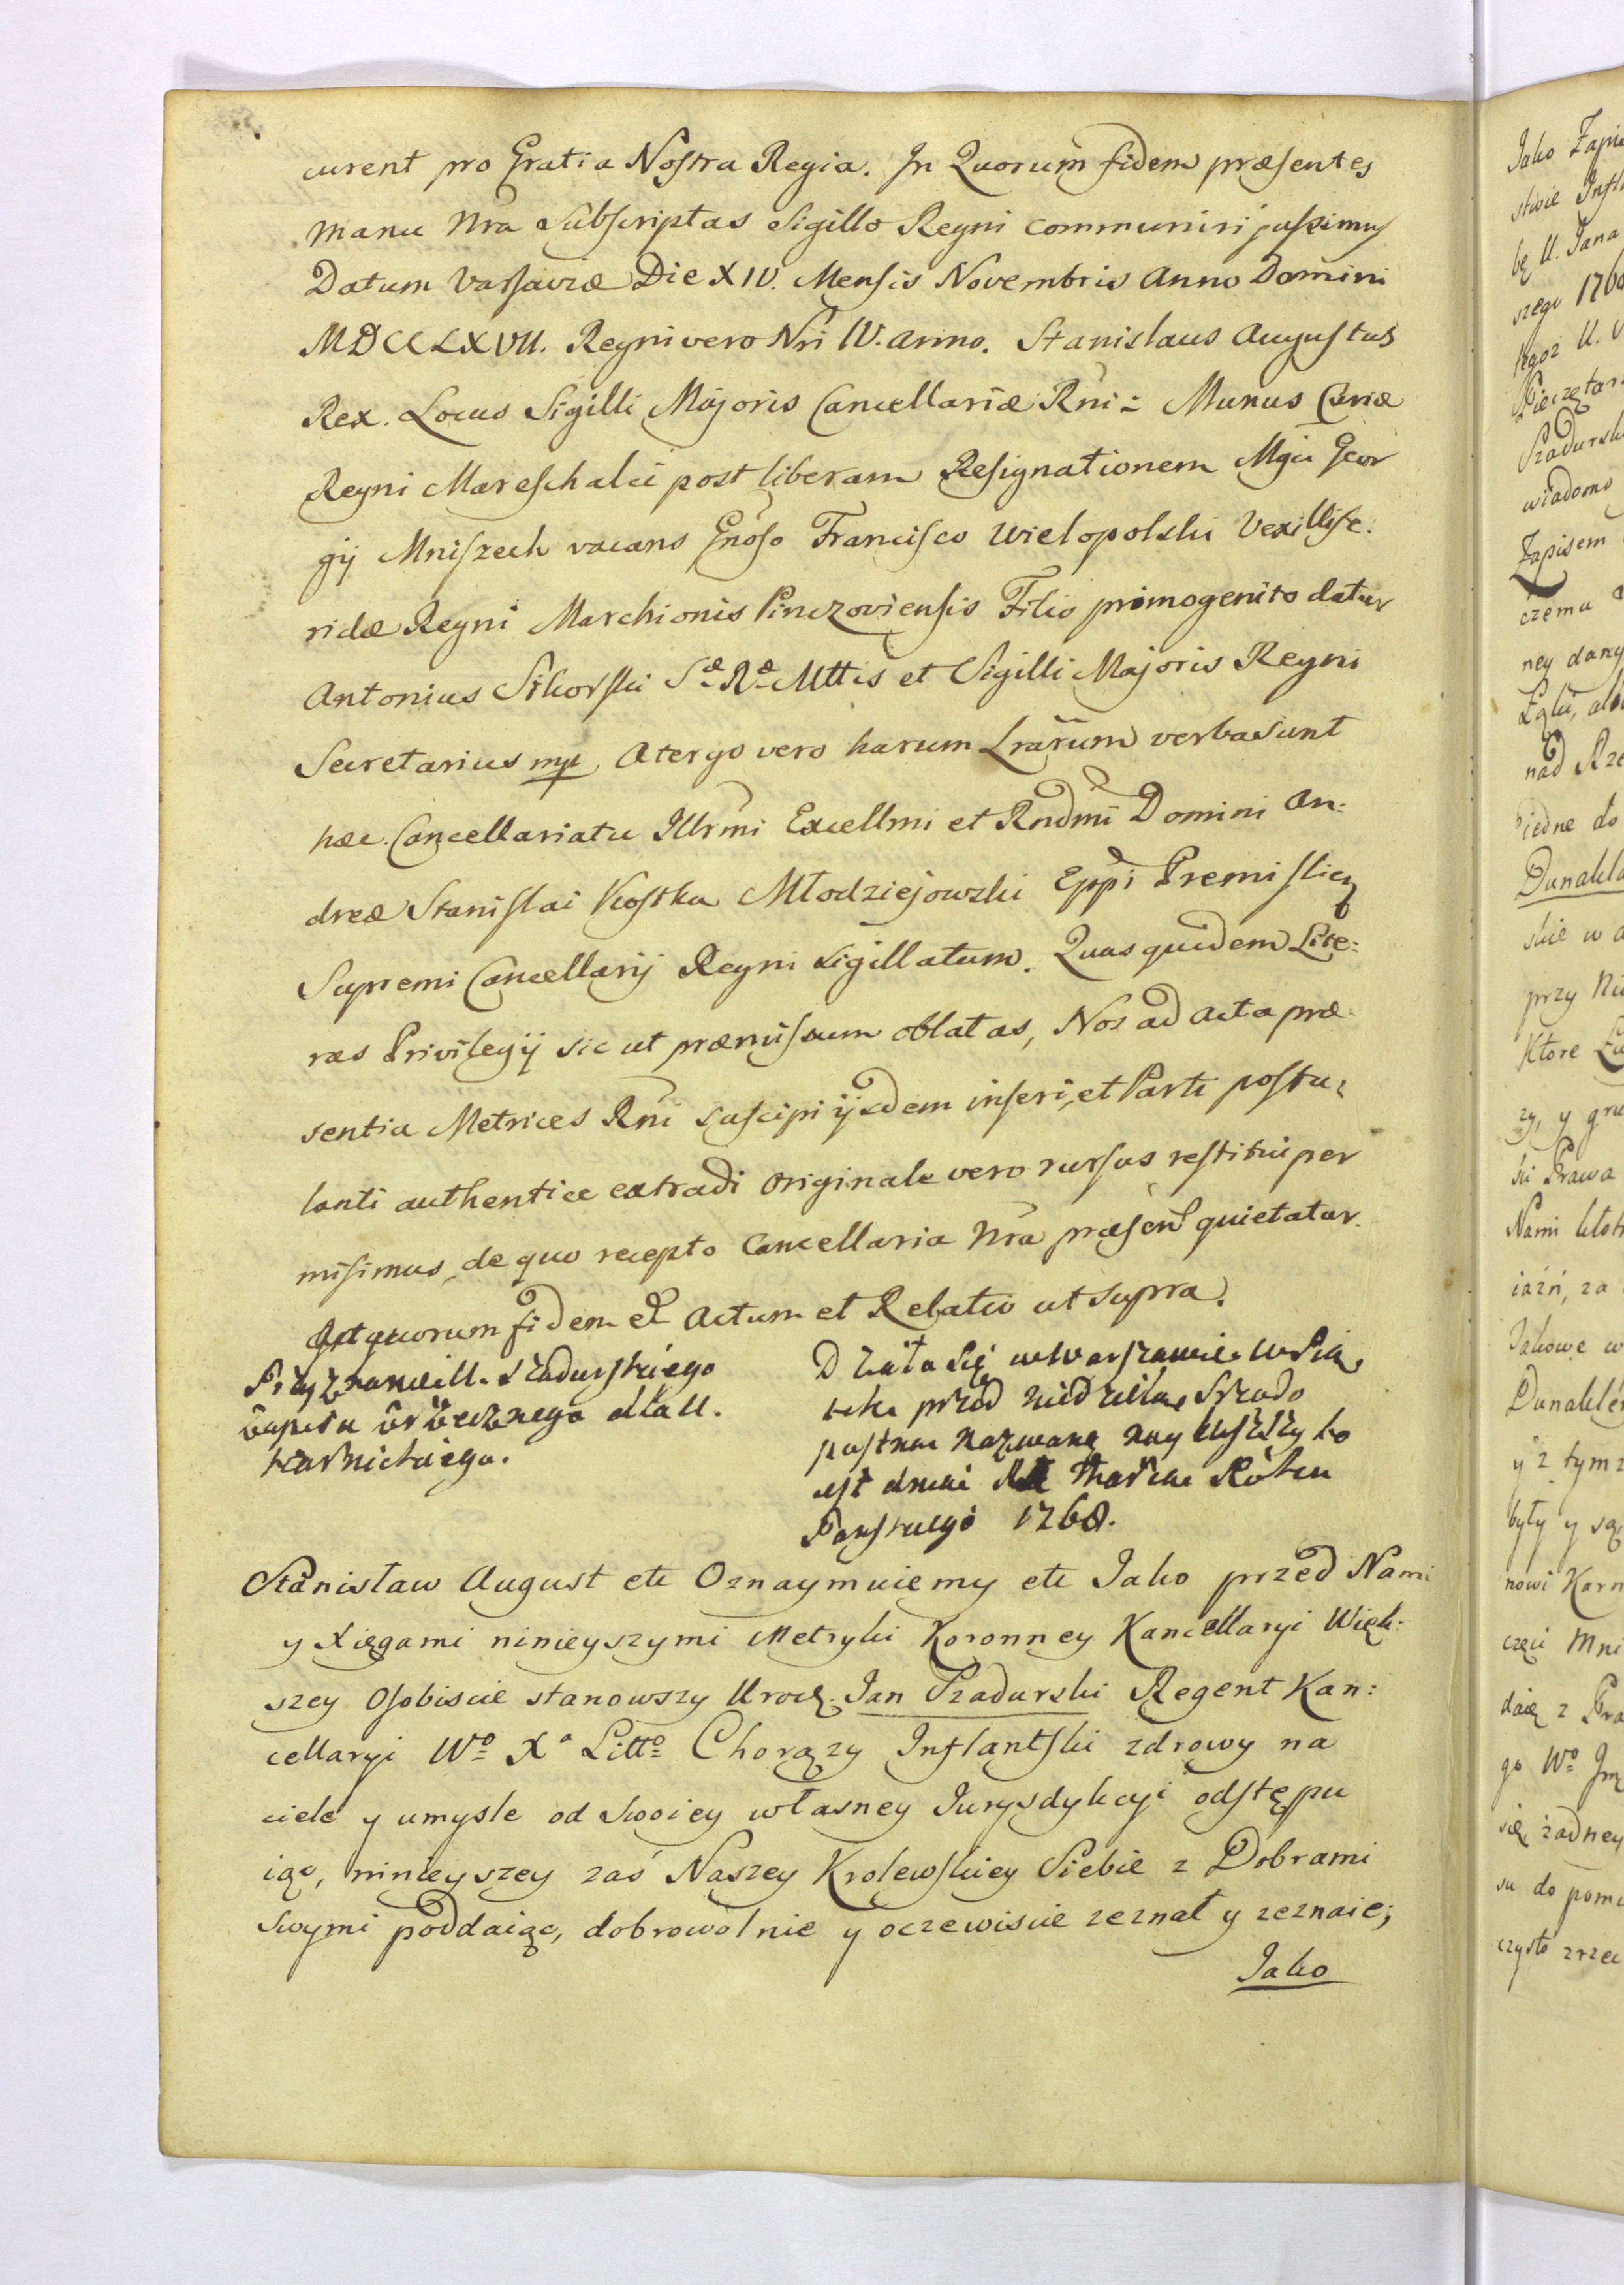 curent pro Gratia Nostra Regia. In Quorum fidem præsentes
manu Nra Subscriptas Sigillo Regni communiri jussimus
Datum Varsaviæ Die XIV. Mensis Novembris Anno Domini
MDCCLXVII. Regni vero Nri IV. anno. Stanislaus Augustus
Rex. Locus Sigilli Majoris Cancellariæ Rni: Munus Curiæ
Regni Mareschalci post liberam Resignationem Mgci Geor
gij Mniszech vacans Gnoso Francisco Wielopolski Vexillife:
ridæ Regni Marchionis Pinczoviensis Filio primogenito datur
Antonius Sikorski Sæ Ræ Mttis et Sigilli Majoris Regni
Secretarius mp. A tergo vero harum Lrarum verba sunt
hæc. Cancellariatu Illrmi Excellmi et Rndmi Domini An:
dreæ Stanislai Kostka Młodziejowski Eppi Premislien
Supremi Cancellarij Regni sigillatum. Quas quidem Lite:
ras Privilegij sic ut præmissum oblatas, Nos ad Acta præ
sentia Metrices Rni suscipi ijsdem inseri, et Parti postu:
lanti authentice extradi originale vero rursus restitui per
misimus, de quo recepto Cancellaria Nra præsent quietatur.
In quorum fidem et Actum et Relatio ut supra.
Przyznanie U. Szadurskiego
zapisu wiecznego dla U.
Karnickiego.
Działo się w Warszawie w Pią
tek przed niedzielą Srzodo
postną nazwaną naybliższy to
iest dnia Marca Roku
Panskiego 1768.
Stanisław August etc Oznaymuiemy etc Jako przed Nami
y Xięgami ninieyszymi Metryki Koronney Kancellaryi Więk:
szey Osobiscie stanowszy Urodz. Jan Szadurski Regent Kan:
cellaryi Wo Xa Litto Chorązy Inflantski zdrowy na
ciele y umysle od swoiey własney Jurysdykcyi odstępu
iąc, ninieyszey zaś Naszey Krolewskiey Siebie z Dobrami
Swymi poddaiąc, dobrowolnie y oczewiscie zeznał y zeznaie;
Jako
Jako Zapis
stwie Infl
bę U. Jana
szego 176
tegoż U.
Pieczętar
Szadursk
wiadomo
Zapisem
czema
ney dany
nad Rze
biedne do
Dunakla
skie w
przy Ni
Ktore
zy, y gru
ki Prawa
Nami
iażń, za
Jakowe w
Dunakle
y z tym z
były y są
nowi Karn
częci Mni
daię z Pra
go Wo
się żadney
su do pom
czysto zrzec